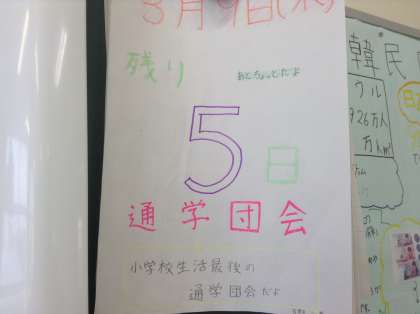 3月9日(木)
残り
あとちょっとだよ
5日
通学団会
小学校生活最後の
通学団会だよ
韓民
926万人
万km²